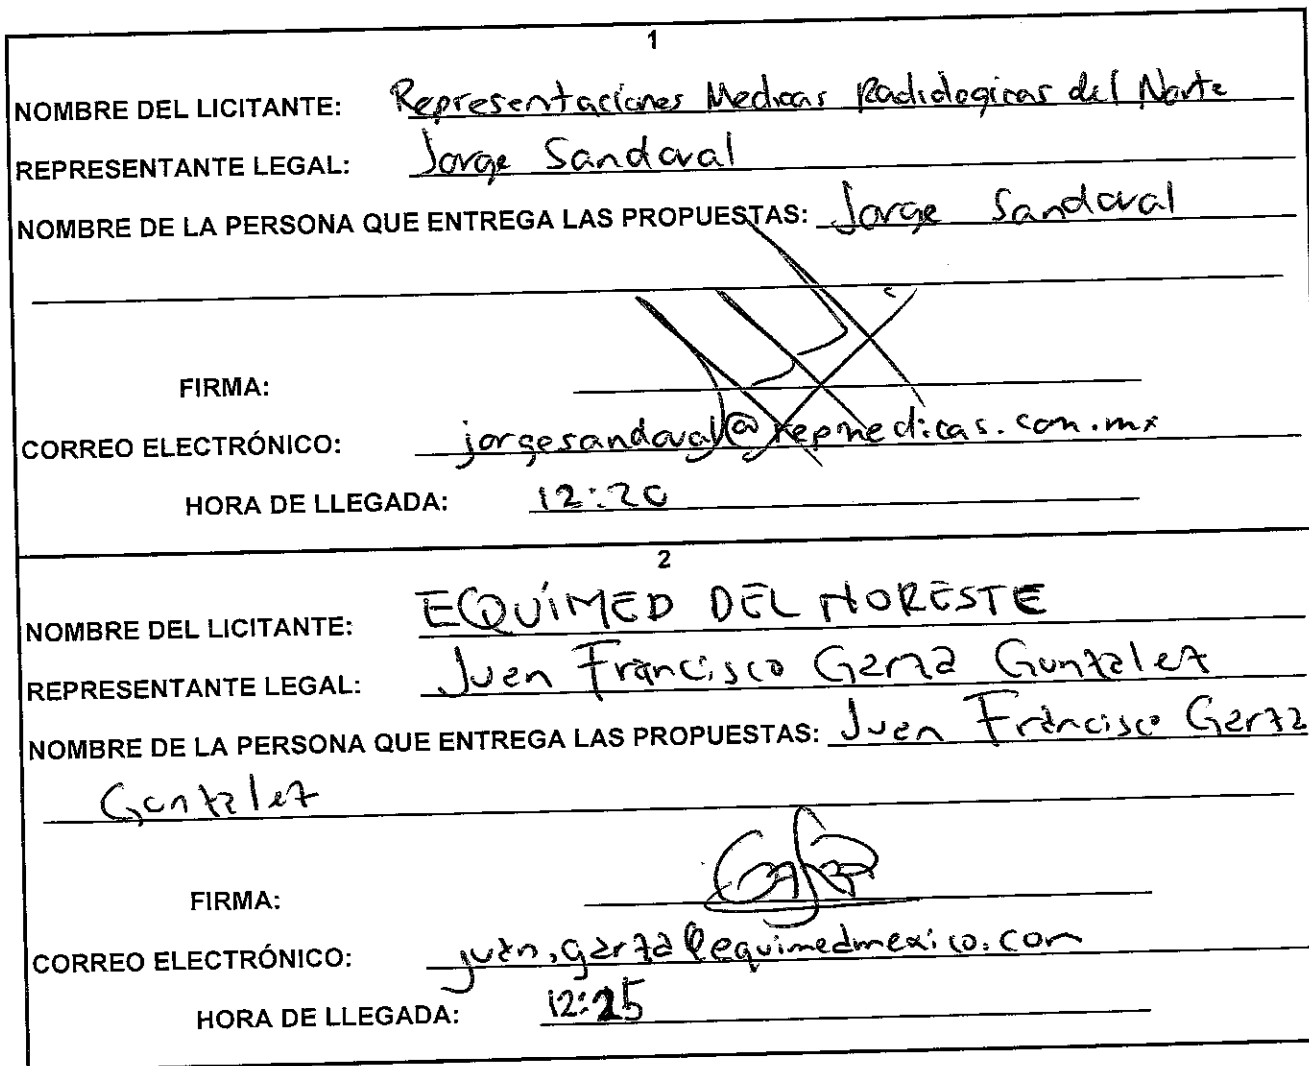 1
NOMBRE DEL LICITANTE: Representaciones Medicas Radiologicas del Norte
REPRESENTANTE LEGAL: Jorge Sandoval
NOMBRE DE LA PERSONA QUE ENTREGA LAS PROPUESTAS: Jorge Sandoval
FIRMA:
CORREO ELECTRÓNICO: jorgesandoval@repmedicas.com.mx
HORA DE LLEGADA: 12:20
2
NOMBRE DEL LICITANTE: EQUIMED DEL NORESTE
REPRESENTANTE LEGAL: Juan Francisco Garza Gonzalez
NOMBRE DE LA PERSONA QUE ENTREGA LAS PROPUESTAS: Juan Francisco Garza
Gonzalez
FIRMA:
CORREO ELECTRÓNICO: juan.garza@equimedmexico.com
HORA DE LLEGADA: 12:25